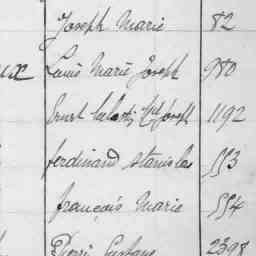 Joseph Marie 82
Louis Marie Joseph 980
Ernest Joseph 1192
ferdinand stanislas 553
françois Marie 554
Henri Gustave 2398